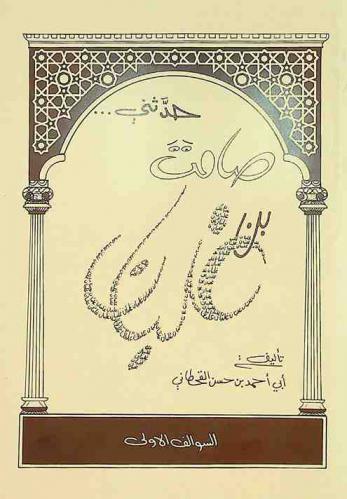 حدّثني ...
صامتة
بن
تأليف :
أبي أحمد بن حسن القحطاني
السوالف الأولى